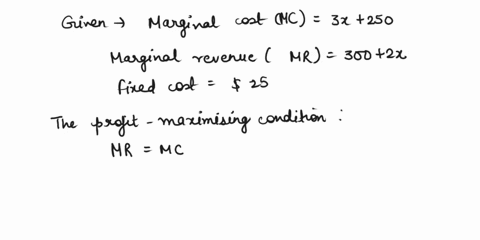 Given → Marginal cost (MC) = 3x + 250
Marginal revenue ( MR) = 300 + 2x
fixed cost = $ 25
The profit - maximising condition :
MR = MC